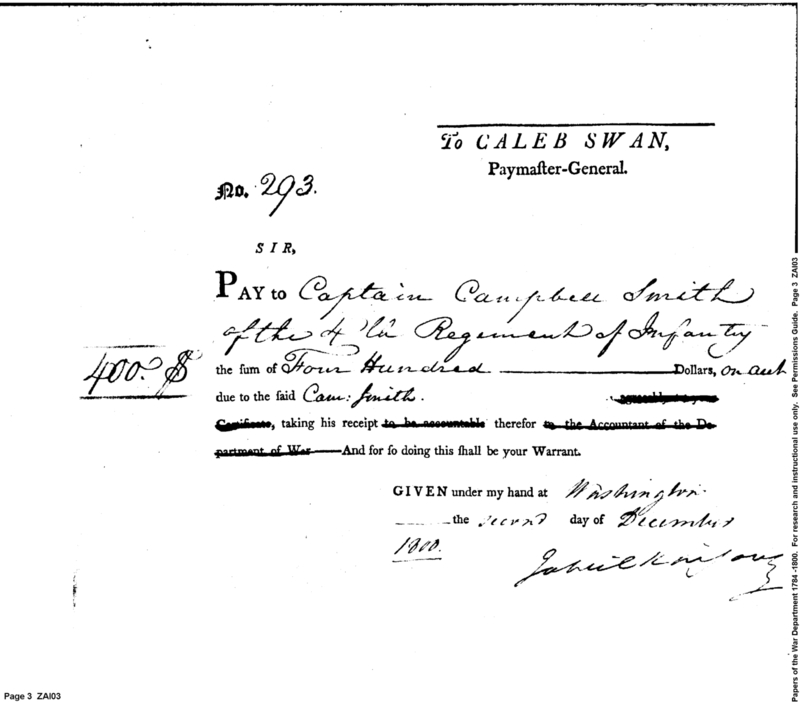 To CALEB SWAN,
Paymaſter-General.
No. 293.
SIR,
PAY to Captain Campbell Smith
of the 4th Regiment of Infantry
400. $ the ſum of Four Hundred Dollars, on
due to the ſaid Cam: Smith. agreeably to
Certificate, taking his receipt to be accountable therefor to the Accountant of the De-
partment of War And for ſo doing this ſhall be your Warrant.
GIVEN under my hand at Washington
the second day of December
1800.
Page 3 ZAI03
Papers of the War Department 1784 -1800. For research and instructional use only. See Permissions Guide. Page 3 ZAI03